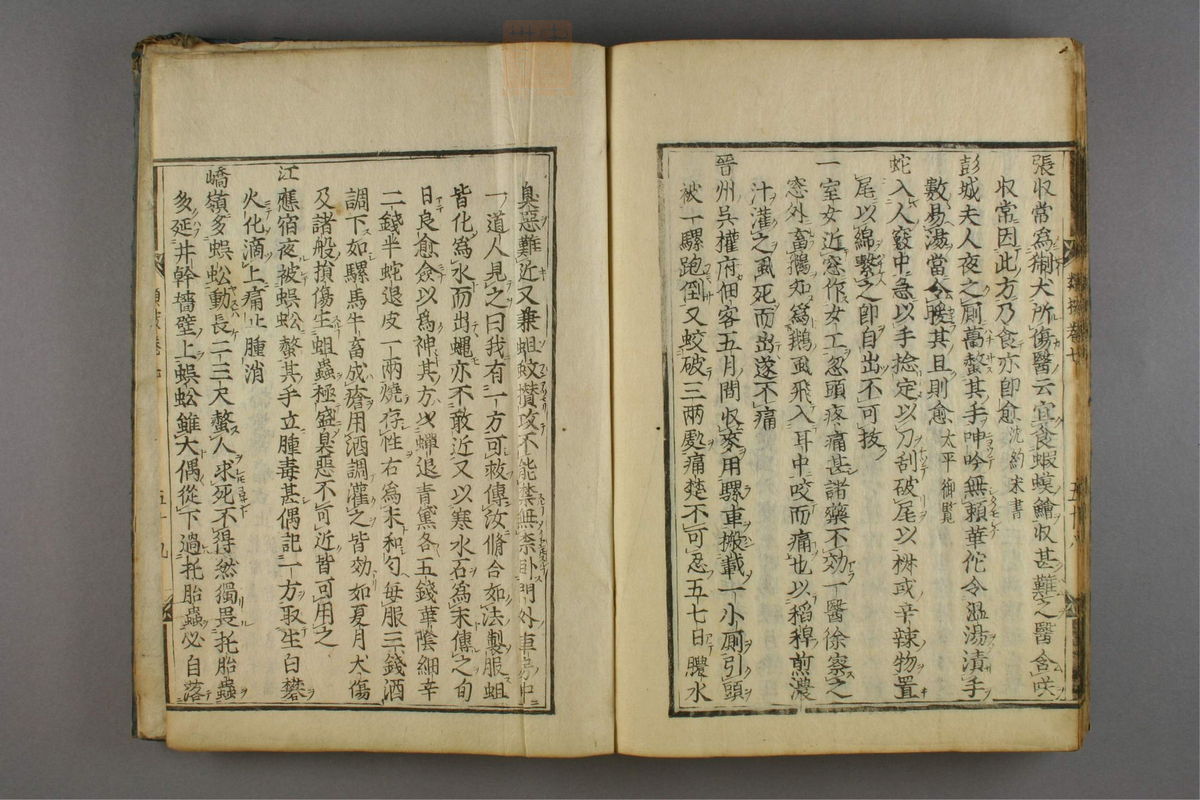 張収常為猘犬所傷醫云宜食蝦蟆鱠収甚難之醫含㗛
収常因此方乃食亦即愈 沈約宋書
彭城夫人夜之厠蠆螫其手呻吟無頼華佗令溫湯漬手
數易湯當令暖其旦則愈 太平御覧
蛇入人竅中急以手捻定以刀刮破尾以椒或辛辣物置
尾以綿繫之即自出不可拔
一室女近窓作女工忽頭疼痛甚諸藥不効一醫徐察之
窓外畜鵝乃為鵝虱飛入耳中咬而痛也以稻稈煎濃
汁灌之虱死而出遂不痛
晋州吳權府佃客五月間収麥用騾車搬載一小厠引頭
被一騾跑倒又蛟破三兩處痛楚不可忍五七日膿水
臭惡難近又兼蛆蚊攅攻不能禁無柰卧門外車房中
一道人見之曰我有一方可救傳汝脩合如法製服蛆
皆化為水而出蠅亦不敢近又以寒水石為末傅之旬
日良愈僉以為神其方必蟬退青黛各五錢華陰細辛
二錢半蛇退皮一兩燒存性右為末和匀毎服三錢酒
調下如騾馬牛畜成瘡用酒調灌之皆効如夏月犬傷
及諸般損傷生蛆蟲極盛臭惡不可近皆可用之
江應宿夜被蜈蚣螫其手立腫毒甚偶記一方取生白礬
火化滴上痛止腫消
嶠嶺多蜈蚣動長二三尺螫人求死不得然獨畏托胎蟲
多延井幹墻壁上蜈蚣雖大偶從下過托胎蟲必自落
五十九